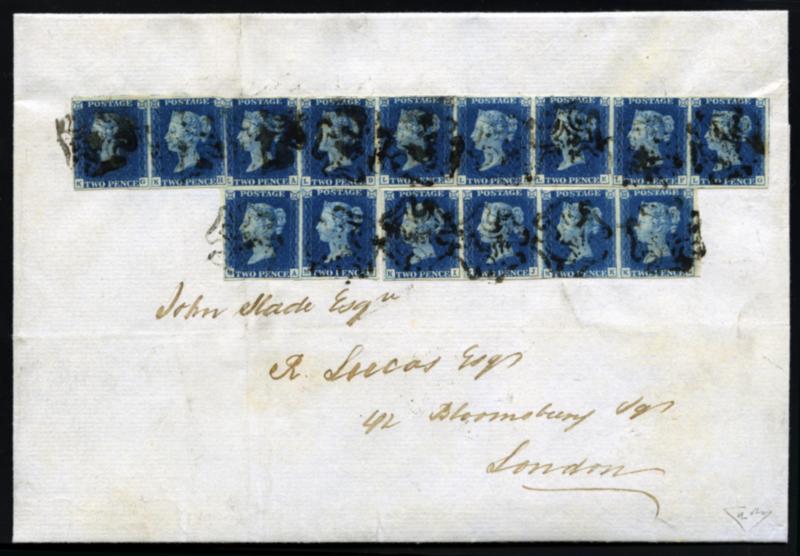 POSTAGE POSTAGE POSTAGE POSTAGE POSTAGE POSTAGE POSTAGE POSTAGE POSTAGE
TWO PENCE TWO PENCE TWO PENCE TWO PENCE TWO PENCE TWO PENCE TWO PENCE TWO PENCE TWO PENCE
POSTAGE POSTAGE POSTAGE POSTAGE POSTAGE POSTAGE
TWO PENCE TWO PENCE TWO PENCE TWO PENCE TWO PENCE TWO PENCE
John Slade Esqr
R. Lucas Esqr
42 Bloomsbury Sqr
London